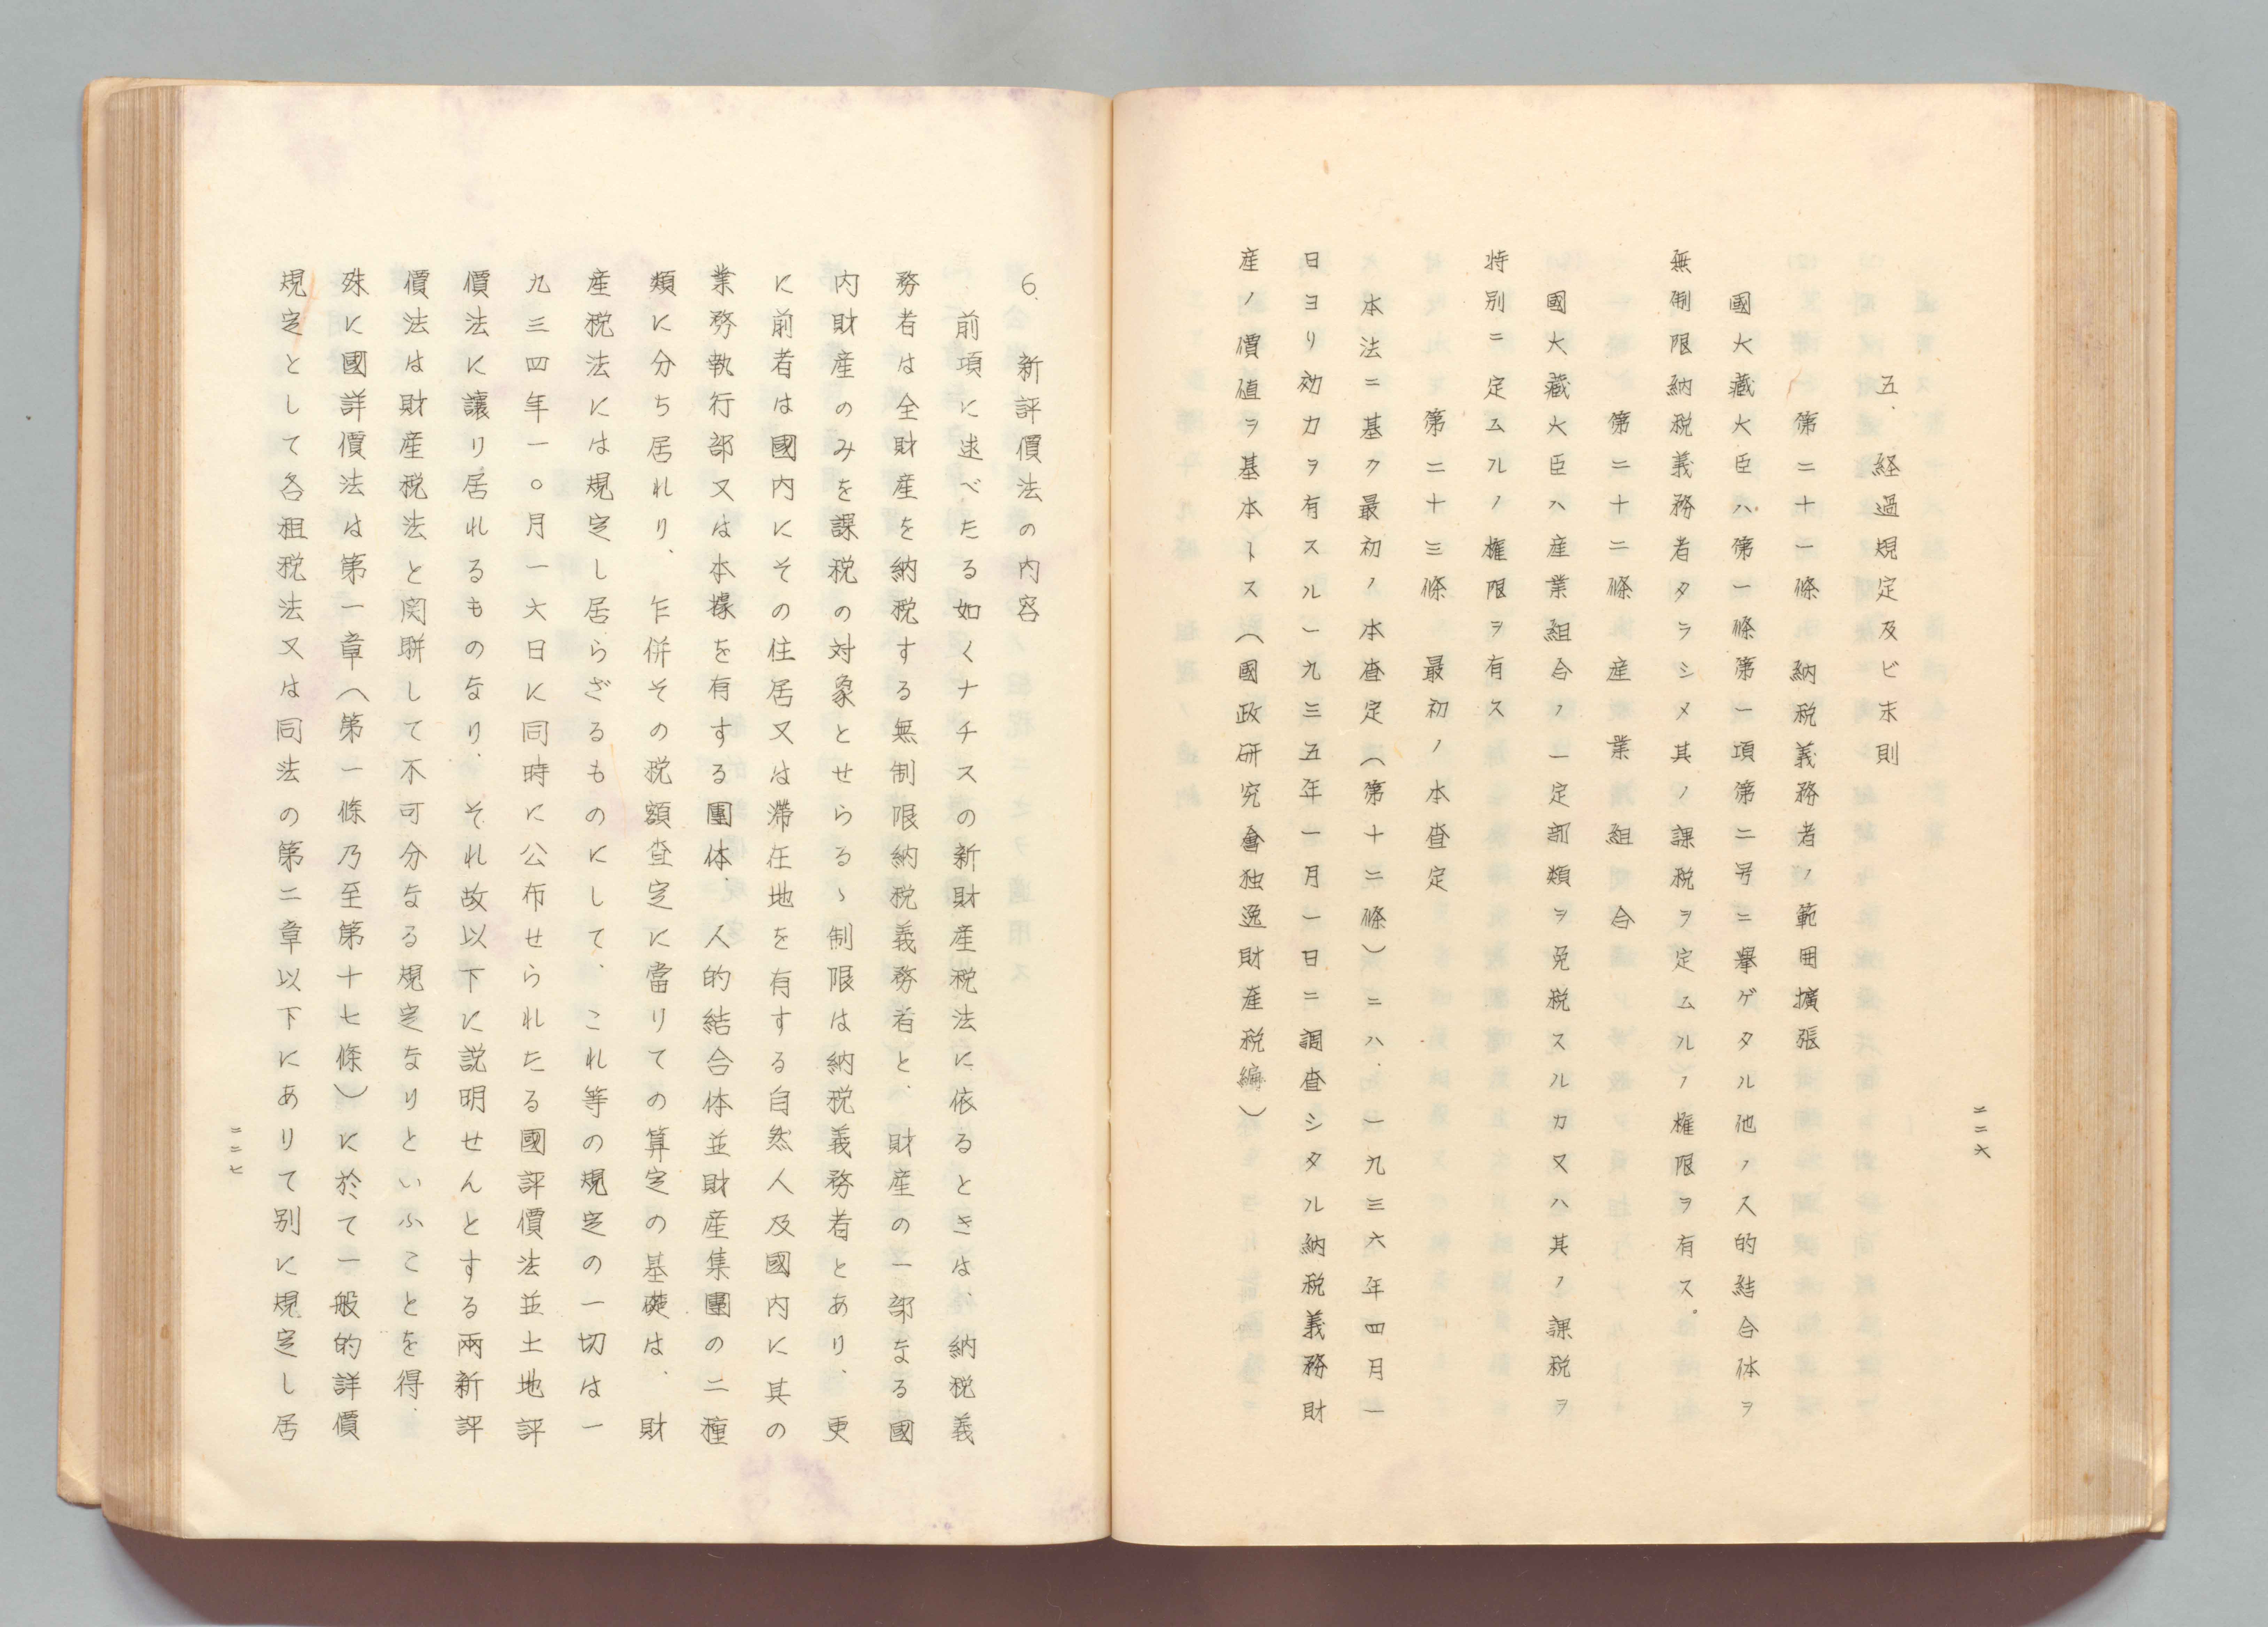 二二六
五、経過規定及ビ末則
第二十一條　納税義務者ノ範囲擴張
國大藏大臣ハ第一條第一項第二号ニ擧ゲタル他ノ人的結合体ヲ
無制限納税義務者タラシメ其ノ課税ヲ定ムルノ権限ヲ有ス。
第二十二條　産業組合
國大藏大臣ハ産業組合ノ一定部類ヲ免税スルカ又ハ其ノ課税ヲ
特別ニ定ムルノ権限ヲ有ス
第二十三條　最初ノ本査定
本法ニ基ク最初ノ本査定（第十二條）ニハ、一九三六年四月一
日ヨリ効力ヲ有スル一九三五年一月一日ニ調査シタル納税義務財
産ノ價値ヲ基本トス（國政研究會独逸財産税編）
6.　新評價法の内容
前項に述べたる如くナチスの新財産税法に依るときは、納税義
務者は全財産を納税する無制限納税義務者と、財産の一部なる國
内財産のみを課税の対象とせらるゝ制限は納税義務者とあり、更
に前者は國内にその住居又は滞在地を有する自然人及國内に其の
業務執行部又は本據を有する團体、人的結合体並財産集團の二種
類に分ち居れり、乍併その税額査定に當りての算定の基礎は、財
産税法には規定し居らざるものにして、これ等の規定の一切は一
九三四年一〇月一六日に同時に公布せられたる國評價法並土地評
價法に讓り居れるものなり、それ故以下に説明せんとする兩新評
價法は財産税法と関聯して不可分なる規定なりといふことを得、
殊に國詳價法は第一章（第一條乃至第十七條）に於て一般的詳價
規定として各租税法又は同法の第二章以下にありて別に規定し居
二二七